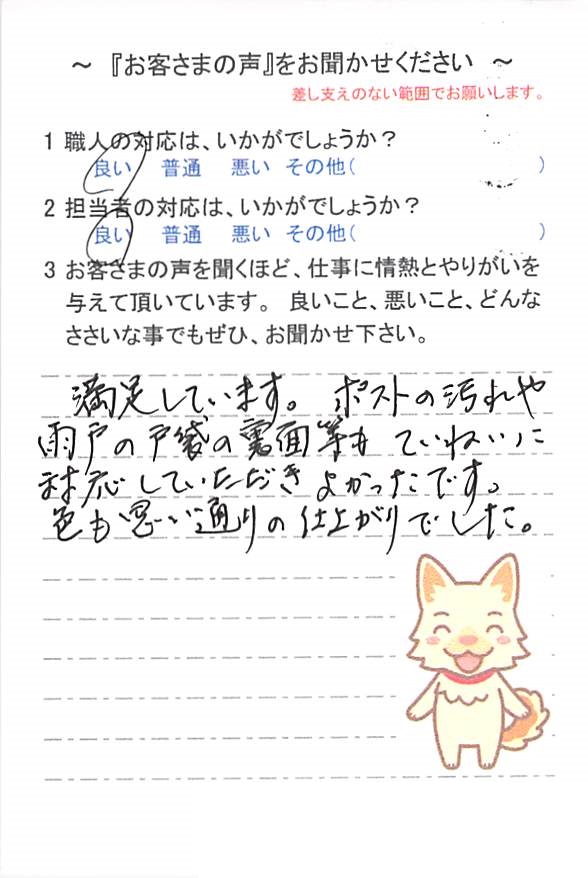 ～ 『お客さまの声』をお聞かせください ～
差し支えのない範囲でお願いします。
1 職人の対応は、いかがでしょうか？
良い 普通 悪い その他( )
2 担当者の対応は、いかがでしょうか？
良い 普通 悪い その他( )
3 お客さまの声を聞くほど、仕事に情熱とやりがいを
与えて頂いています。 良いこと、悪いこと、どんな
ささいな事でもぜひ、お聞かせ下さい。
満足しています。ポストの汚れや
雨戸の戸袋の裏面等もていねいに
対応していただきよかったです。
色も思い通りの仕上がりでした。